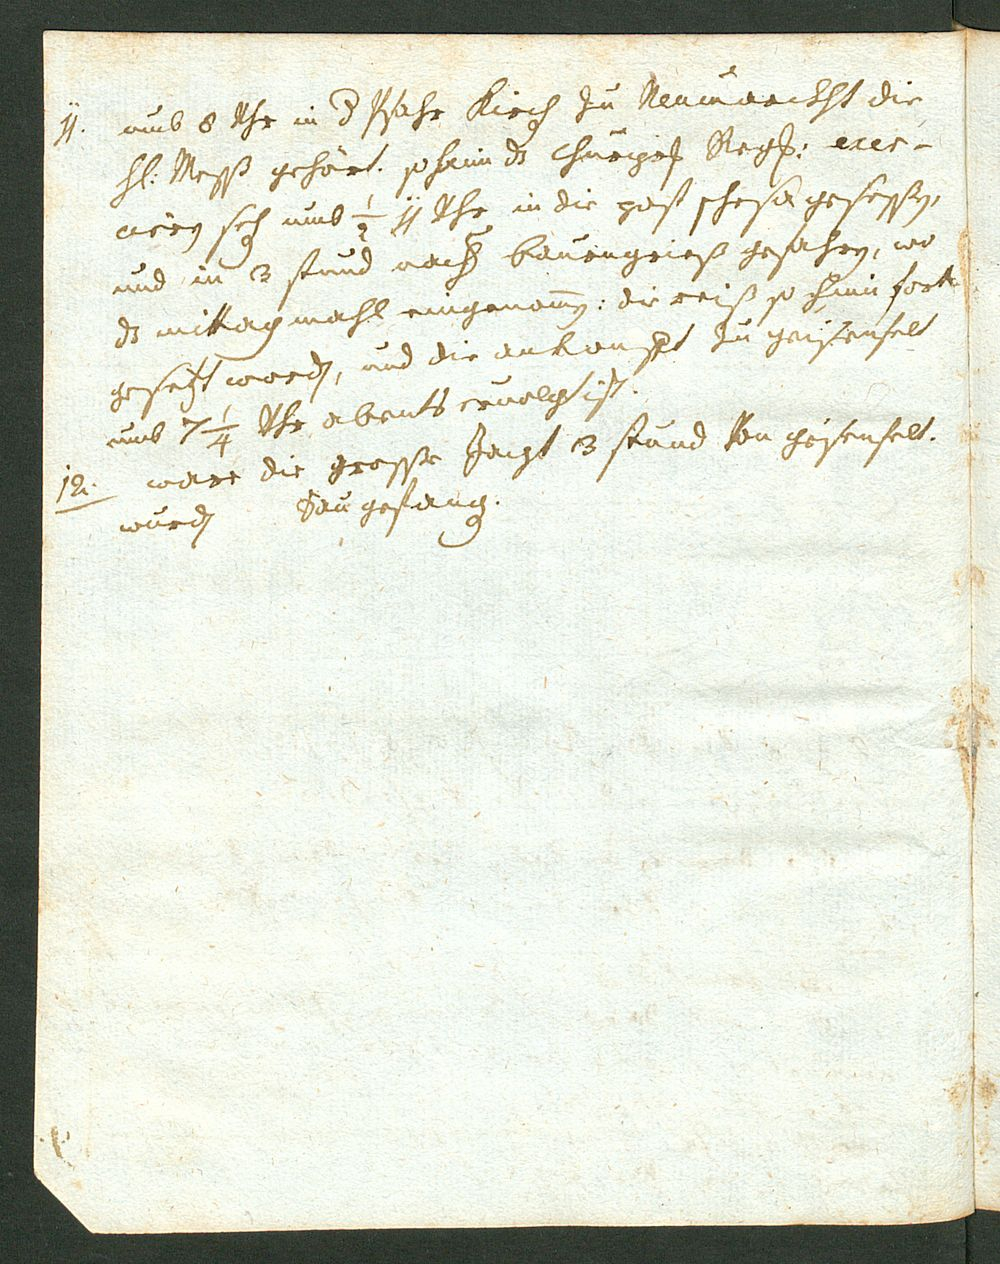 11. umb 8 Uhr in d Pfahr Kirch zu Neumarckht die
hl: Mess gehört. sohin ds Churprf Regt: exer-
ciern seh umb 1/2 11 Uhr in die post schesa gesessen,
und in 3 stund nach bauerngriess gefahrn, wo
ds mittag mahl eingenomen: die reiß so hin fort
gesezt word, und die ankonft zu geisenfelt
umb 7 1/4 Uhr abents ervolgt ist.
12. ware die grosse Jagt 3 stund von geisenfelt.
wurd Sau gefang.